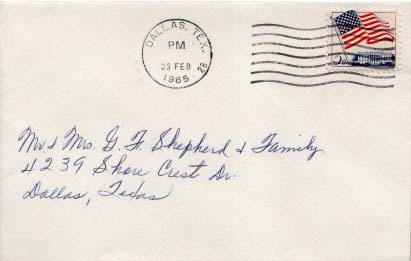 DALLAS, TEX.
PM
25 FEB
1965
2B
Mr & Mrs. G. F. Shepherd & Family
4239 Shore Crest Dr.
Dallas, Texas